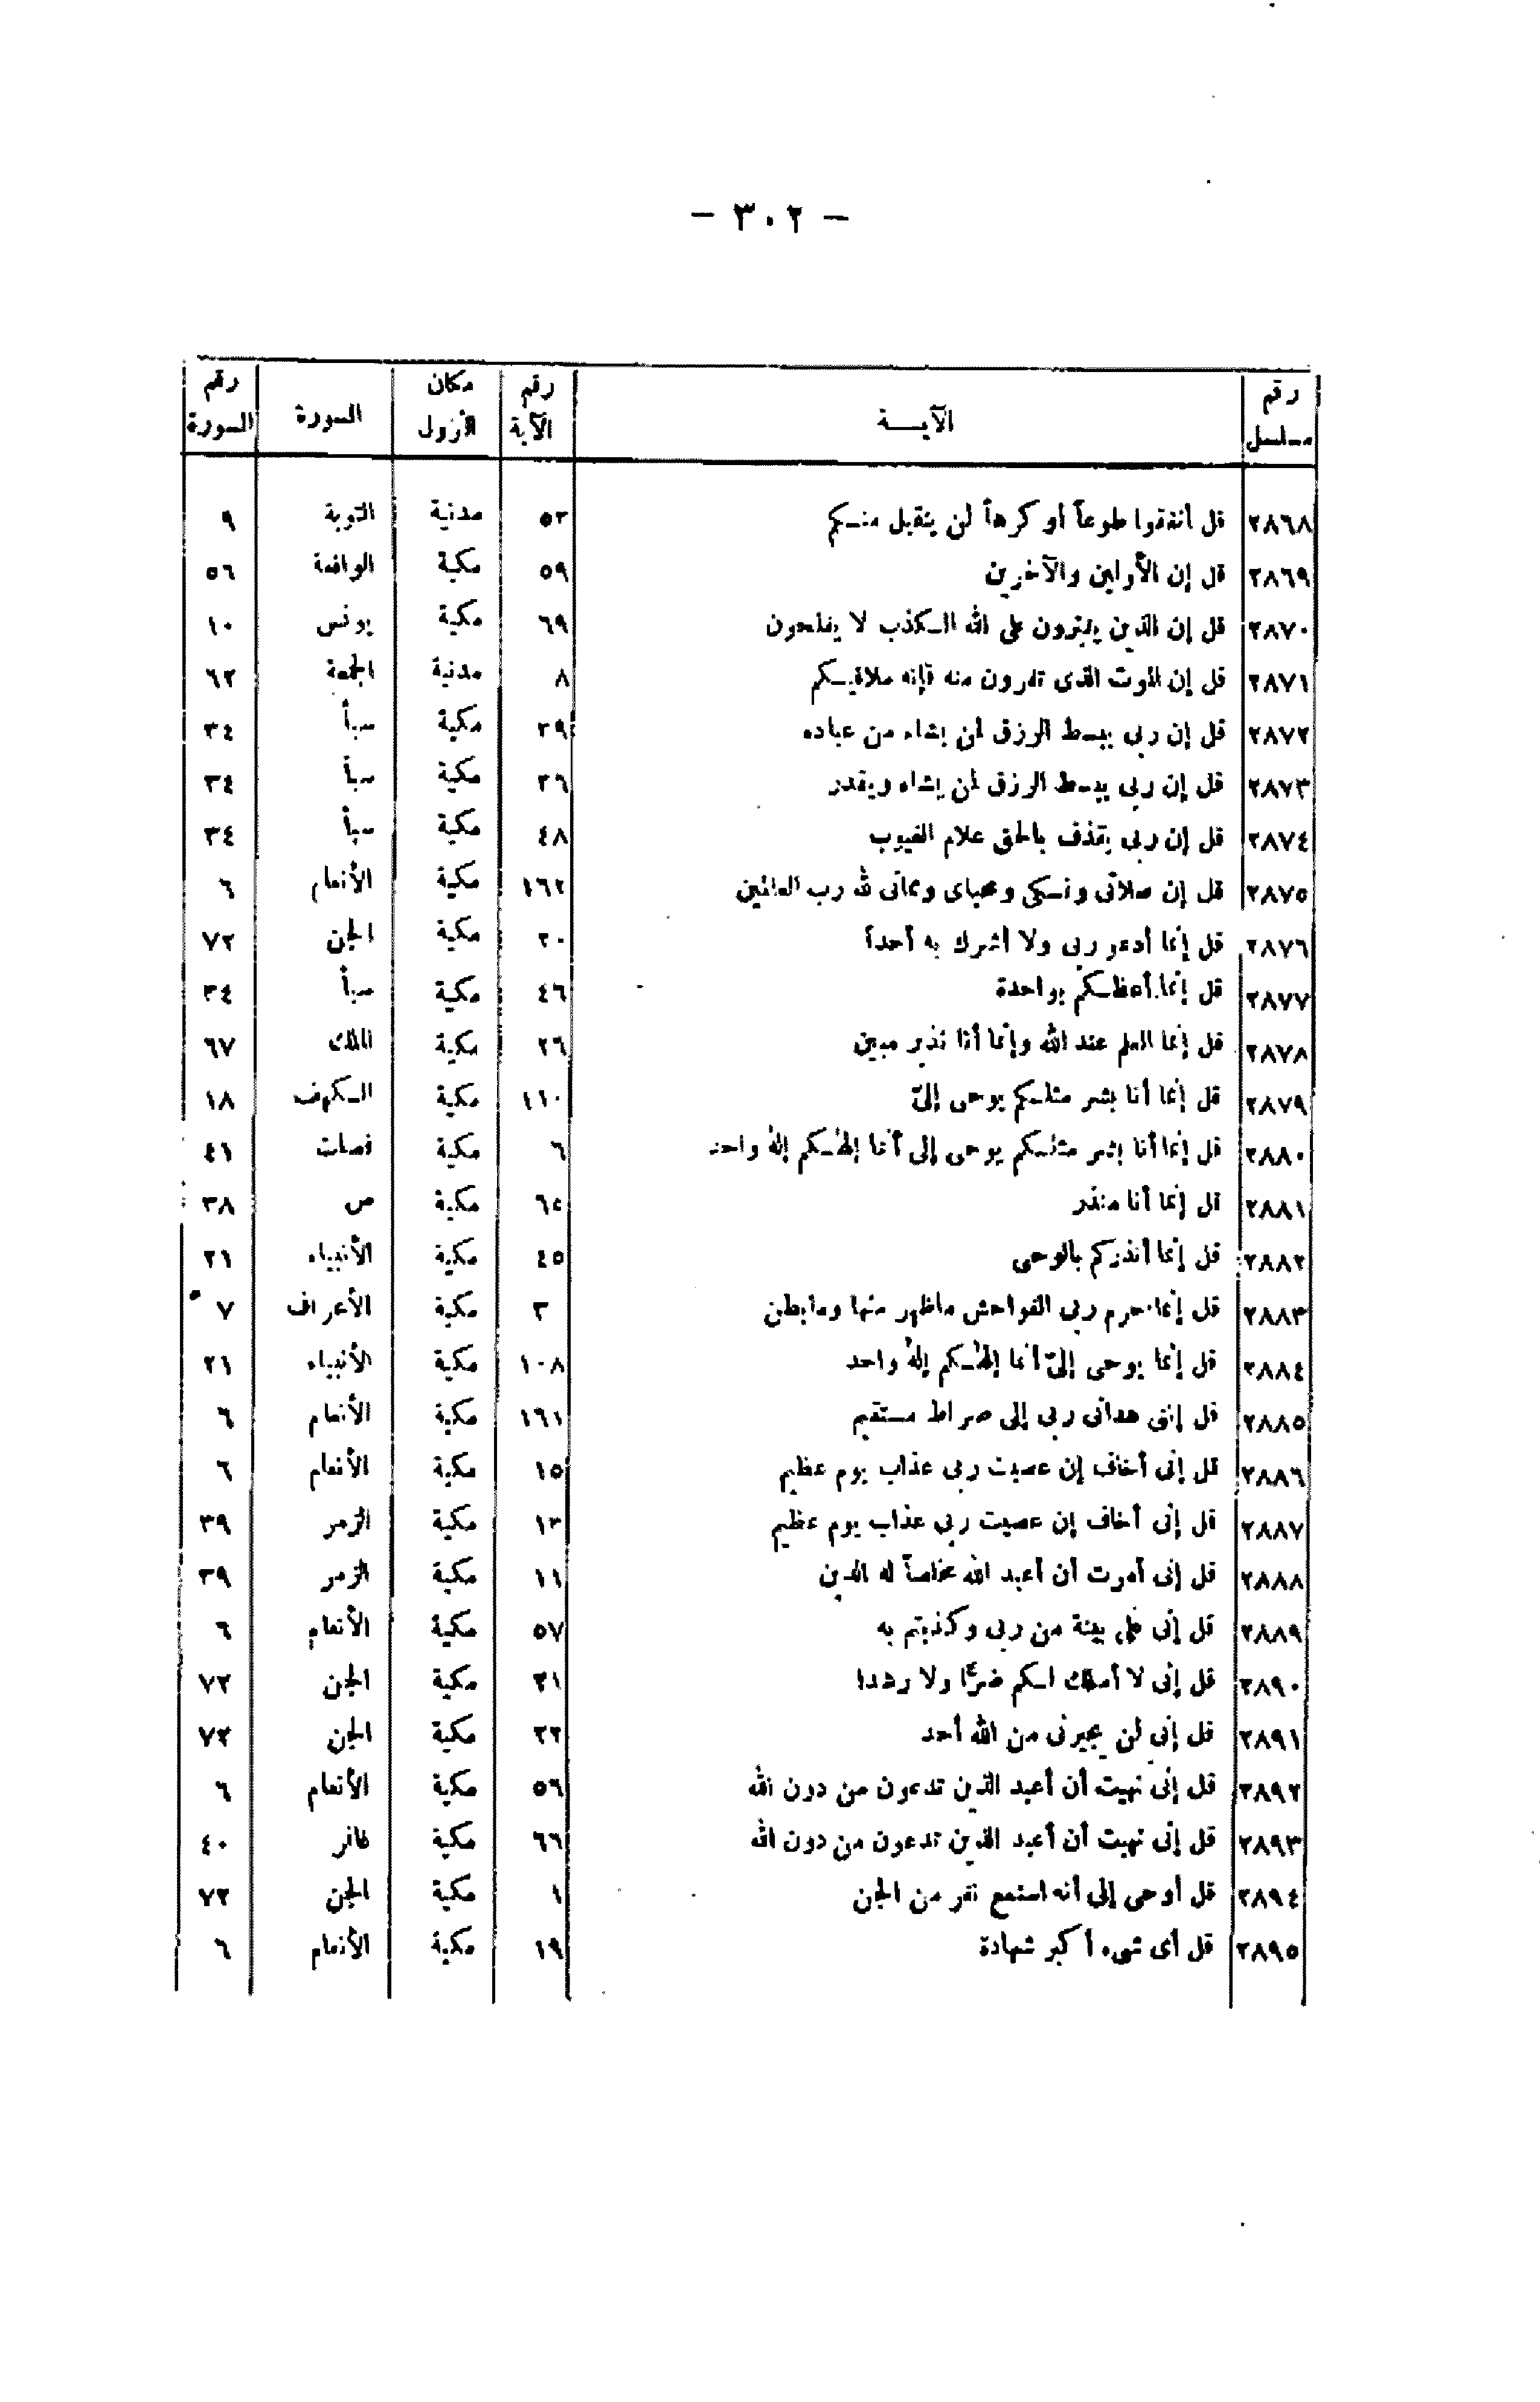 — ٣٠٢ —
رقم مسلسل | الآيــة | رقم الآية | مكان النزول | السورة | رقم السورة
٢٨٦٨ | قل أنفقوا طوعاً أو كرهاً لن يتقبل منـكم | ٥٣ | مدنية | التوبة | ٩
٢٨٦٩ | قل إن الأولين والآخرين | ٥٩ | مكية | الواقعة | ٥٦
٢٨٧٠ | قل إن الذين يفترون على الله الـكذب لا يفلحون | ٦٩ | مكية | يونس | ١٠
٢٨٧١ | قل إن الموت الذى تفرون منه فإنه ملاقيـكم | ٨ | مدنية | الجمعة | ٦٢
٢٨٧٢ | قل إن ربى يبسط الرزق لمن يشاء من عباده | ٣٩ | مكية | سبأ | ٣٤
٢٨٧٣ | قل إن ربى يبسط الرزق لمن يشاء ويقدر | ٣٦ | مكية | سبأ | ٣٤
٢٨٧٤ | قل إن ربى يقذف بالحق علام الغيوب | ٤٨ | مكية | سبأ | ٣٤
٢٨٧٥ | قل إن صلاتى ونسكى ومحياى ومماتى لله رب العالمين | ١٦٢ | مكية | الأنعام | ٦
٢٨٧٦ | قل إنما أدعو ربى ولا أشرك به أحداً | ٢٠ | مكية | الجن | ٧٢
٢٨٧٧ | قل إنما أعظـكم بواحدة | ٤٦ | مكية | سبأ | ٣٤
٢٨٧٨ | قل إنما العلم عند الله وإنما أنا نذير مبين | ٢٦ | مكية | الملك | ٦٧
٢٨٧٩ | قل إنما أنا بشر مثلـكم يوحى إلىّ | ١١٠ | مكية | الـكهف | ١٨
٢٨٨٠ | قل إنما أنا بشر مثلـكم يوحى إلى أنما إلهـكم إله واحد | ٦ | مكية | فصلت | ٤١
٢٨٨١ | قل إنما أنا منذر | ٦٥ | مكية | ص | ٣٨
٢٨٨٢ | قل إنما أنذركم بالوحى | ٤٥ | مكية | الأنبياء | ٢١
٢٨٨٣ | قل إنما حرم ربى الفواحش ماظهر منها ومابطن | ٣ | مكية | الأعراف | ٧
٢٨٨٤ | قل إنما يوحى إلىّ أنما إلهـكم إله واحد | ١٠٨ | مكية | الأنبياء | ٢١
٢٨٨٥ | قل إننى هدانى ربى إلى صراط مستقيم | ١٦١ | مكية | الأنعام | ٦
٢٨٨٦ | قل إنى أخاف إن عصيت ربى عذاب يوم عظيم | ١٥ | مكية | الأنعام | ٦
٢٨٨٧ | قل إنى أخاف إن عصيت ربى عذاب يوم عظيم | ١٣ | مكية | الزمر | ٣٩
٢٨٨٨ | قل إنى أمرت أن أعبد الله مخلصاً له الدين | ١١ | مكية | الزمر | ٣٩
٢٨٨٩ | قل إنى على بينة من ربى وكذبتم به | ٥٧ | مكية | الأنعام | ٦
٢٨٩٠ | قل إنى لا أملك لـكم ضرًّا ولا رشدا | ٢١ | مكية | الجن | ٧٢
٢٨٩١ | قل إنى لن يجيرنى من الله أحد | ٢٢ | مكية | الجن | ٧٢
٢٨٩٢ | قل إنى نهيت أن أعبد الذين تدعون من دون الله | ٥٦ | مكية | الأنعام | ٦
٢٨٩٣ | قل إنى نهيت أن أعبد الذين تدعون من دون الله | ٦٦ | مكية | غافر | ٤٠
٢٨٩٤ | قل أوحى إلى أنه استمع نفر من الجن | ١ | مكية | الجن | ٧٢
٢٨٩٥ | قل أى شىء أكبر شهادة | ١٩ | مكية | الأنعام | ٦